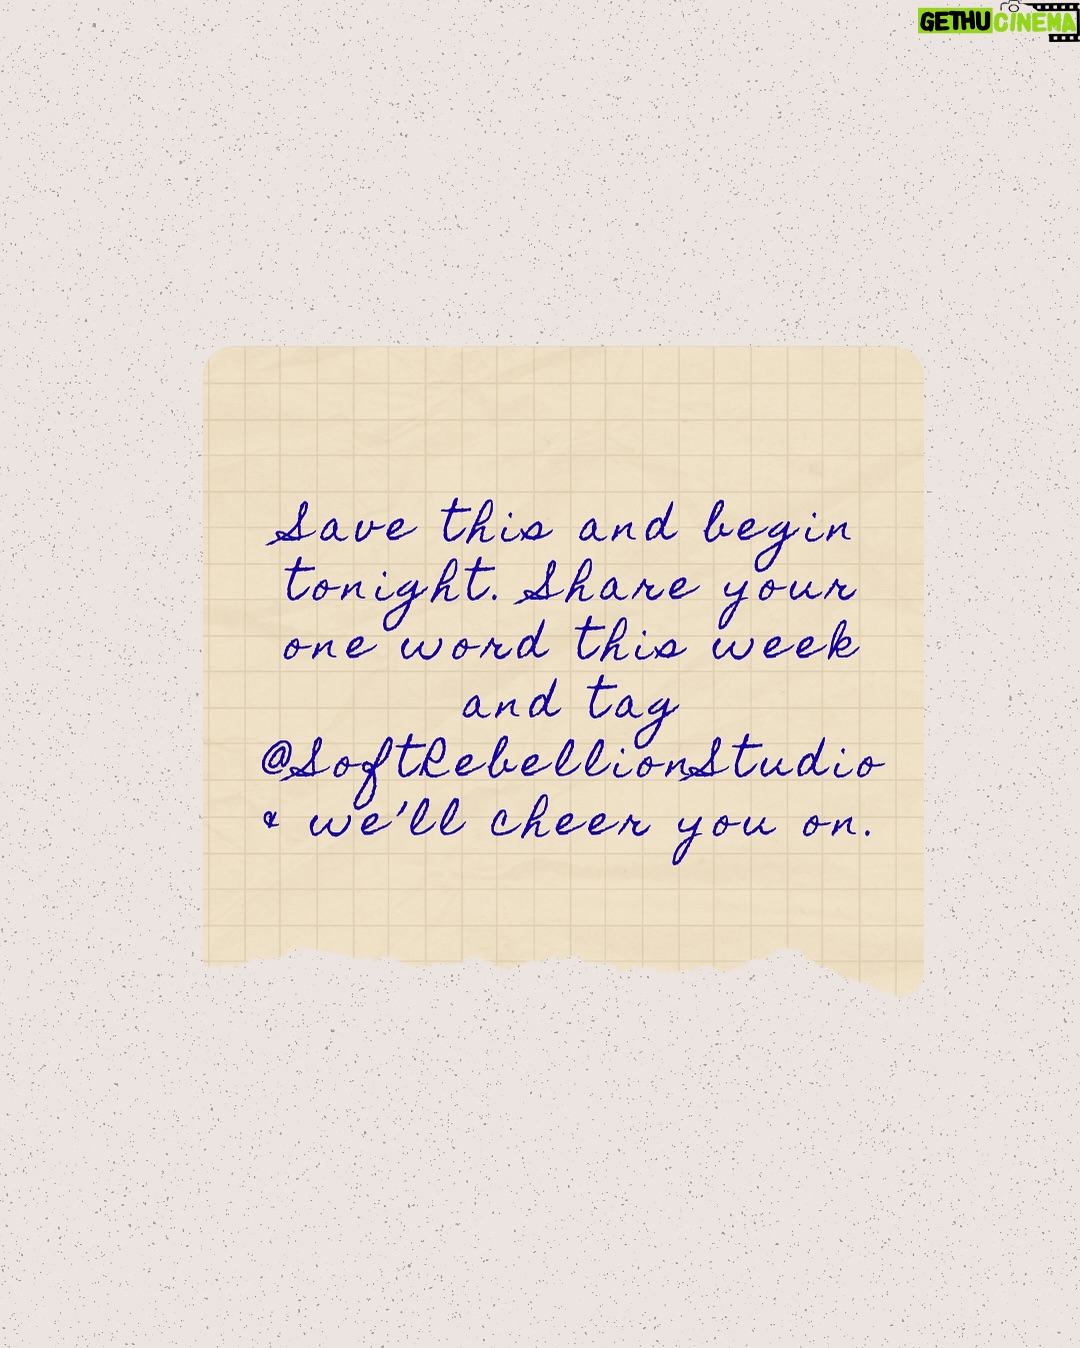 GETHUCINEMA
Save this and begin
tonight. Share your
one word this week
and tag
@SoftRebellionStudio
& we'll cheer you on.